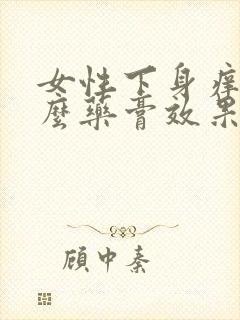 女性下身痒
麼藥膏效果
顾中秦